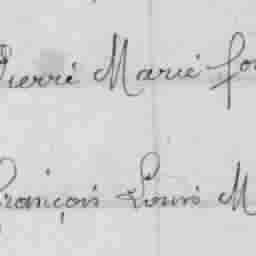 Pierre Marie
François Louis M